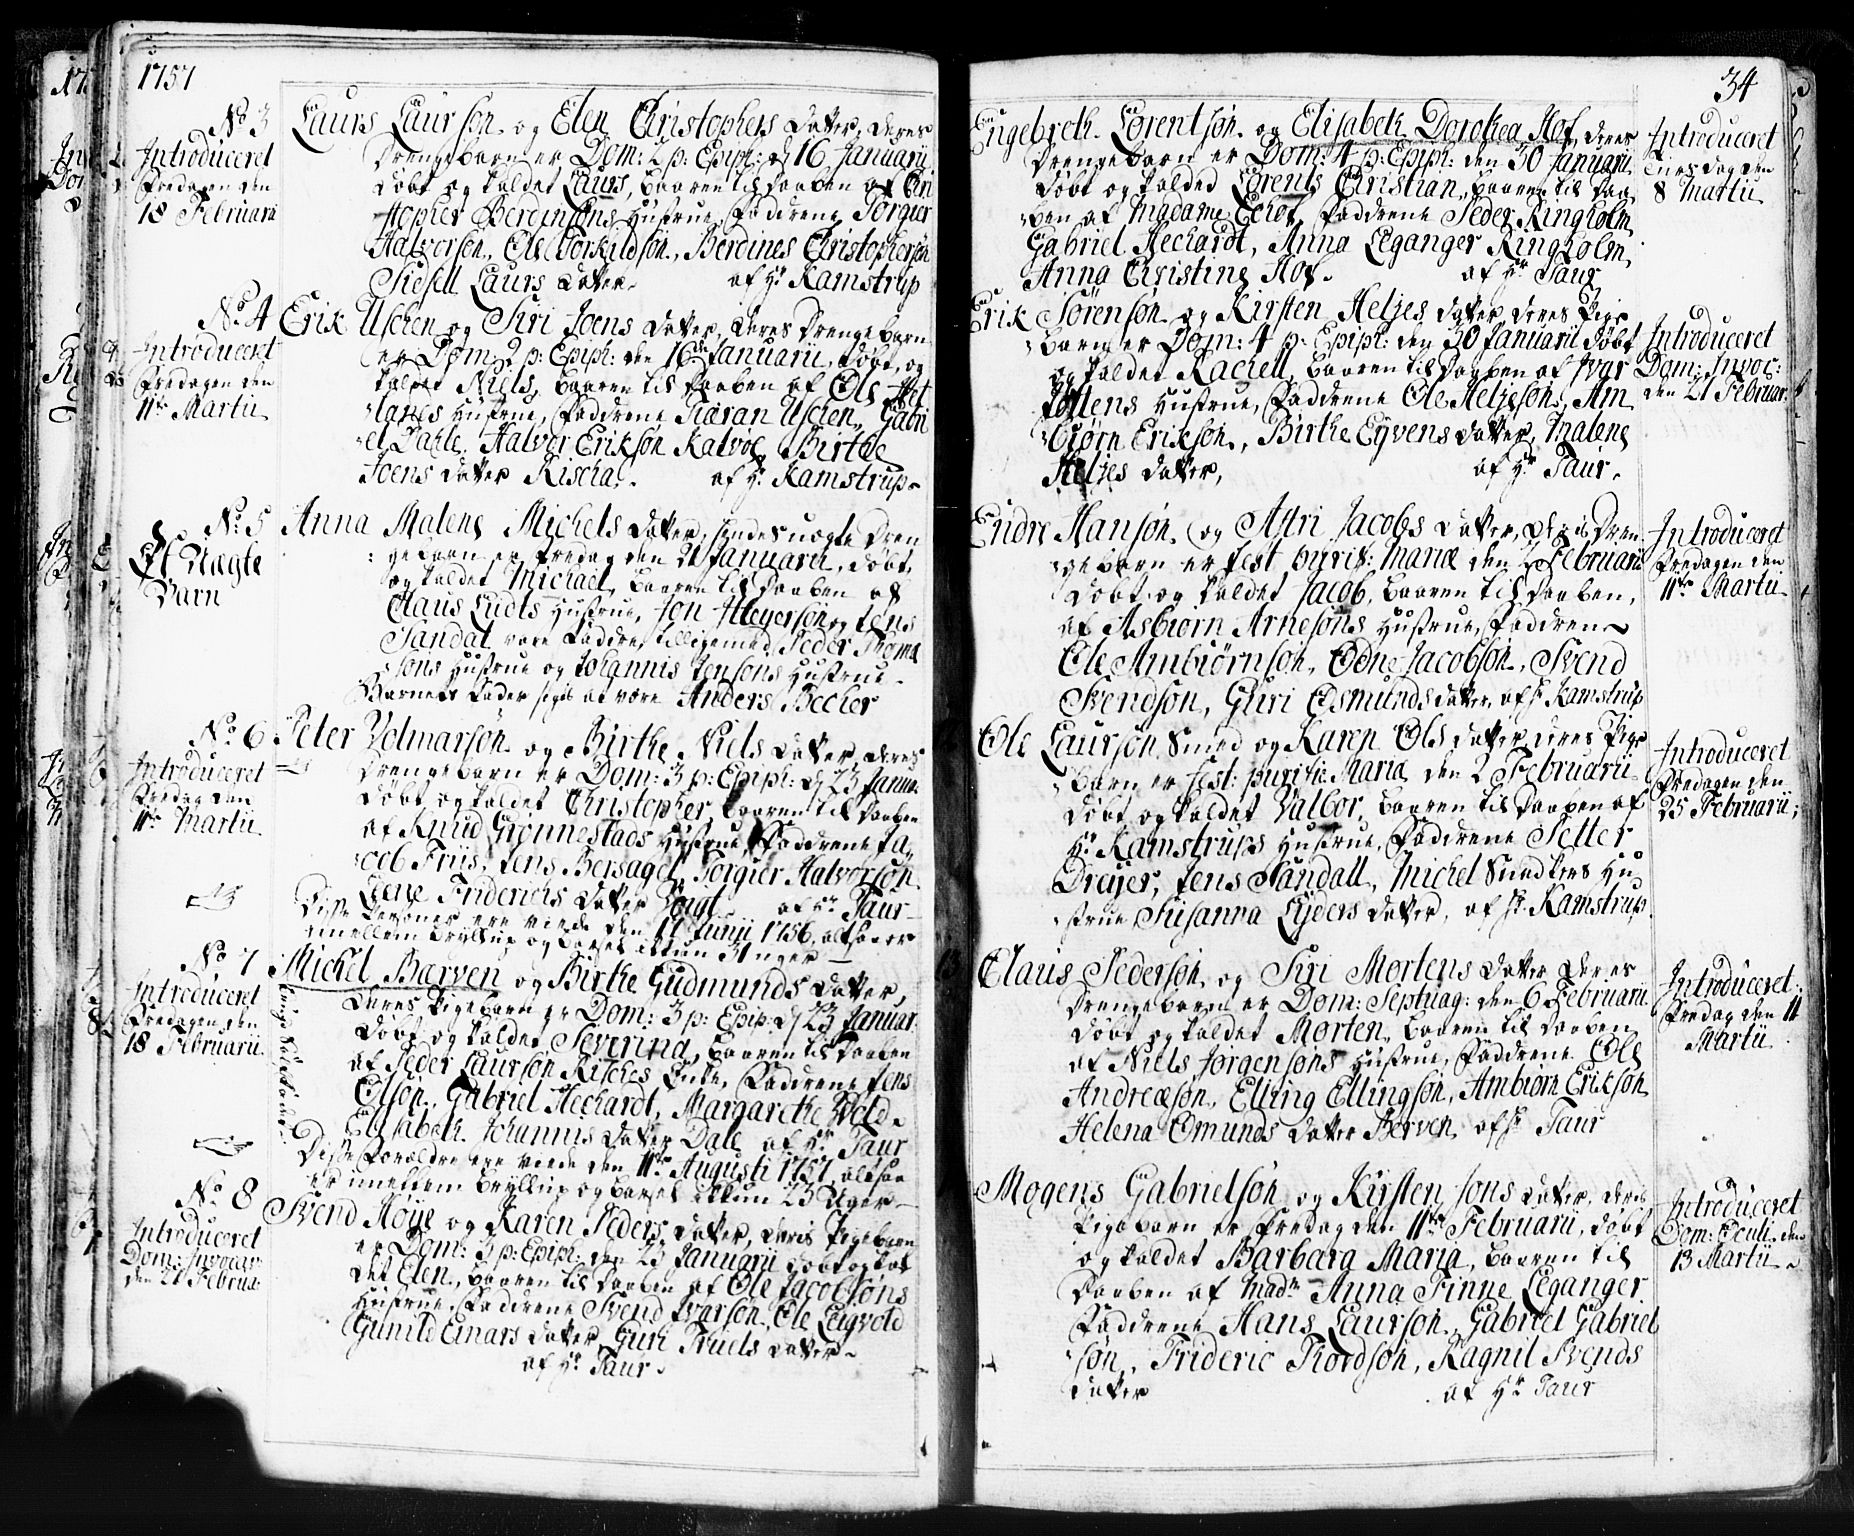 1757
No 3
Introduceret
Fredagen den
18 Februarii
Laurs Laursøn og Elen Christophers datter, deres
Drengebarn er Dom: 2 p: Epiph: d 16 Januarii
døbt og kaldet Laurs, baaren til daaben af Chri
stopher Berdinsøns Hustrue, Faddrene Torgier
Halvorsøn, Ole Torkildsøn, Berdines Christophersøn
Sidsell Laurs datter. af Hr. Kamstrup
No 4
Introduceret
Fredagen den
11te Martii
Erik Uschen og Siri Joens datter, deres Drengebarn
er Dom: 2 p: Epiph: den 16de Januarii, døbt, og
kaldet Niels, baaren til daaben af Ole
lands Hustrue, Faddrene Uschen, Gabri
el Dahle, Halvor Eriksøn Kalvøe, Birthe
Joens datter Rischa. af Hr. Kamstrup
No 5
Et Uægte
Barn
Anna Malene Michels datter, hendes uægte Dren
gebarn er Fredag den 21 Januarii, døbt,
og kaldet Michael, baaren til daaben af
Claus Ludts Hustrue, Jon Heyersøn og Jens
Sandal vare Faddre, tilligemed Peder Thoma
søns Hustrue og Johannis Jensøns Hustrue
Barnets Fader siges at være Anders Becher
No 6
Introduceret
Fredag den
11te Martii
Peter Volmarsøn og Birthe Niels datter, deres
Drengebarn er Dom: 3 p: Epiph: d 23 Janua:
døbt, og kaldet Christopher, baaren til daaben
af Knud Grønnestads Hustrue, Faddrene Ja
cob Friis, Jens Bersagel, Torgier Halvorsøn
Lene Friderichs datter Voigt af Hr. Taur
Disse Personer ere viede den 17 Junii 1756, altsaa er
imellem Bryllup og Barsel ikkun 31 Uger
No 7
Introduceret
Fredagen den
18 Februarii
Michel Barven og Birthe Gudmunds datter,
deres Pigebarn er Dom: 3 p: Epip: d 23 Januar:
døbt og kaldet Severina, baaren til daaben
af Peder Laursøn Risches Enke, Faddrene Jens
Olsøn, Gabriel Hechardt, Margarethe Weld
Elisabeth Johannis datter Dale af Hr. Taur
Disse Forældre ere viede den 11te Augusti 1757, altsaa
er imellem Bryllup og Barsel ikkun 23 Uger
No 8
Introduceret
Dom: Invocav:
den 27 Februa:
Svend Høye og Karen Peders datter, deris Pigebarn
er Dom: 3 p: Epiph: den 23 Januarii døbt og kal
det Elen, baaren til daaben af Ole Jacobsøns
Hustrue, Faddrene Svend Ivarsøn, Ole Leigvold
Gunild Einars datter, Guri Truels datter
af Hr. Taur.
34
Engebreth Lorentsøn og Elisabeth Dorothea Hof, deres
Drengebarn er Dom: 4 p: Epiph: den 30 Januarii,
døbt og kaldet Lorents Christian, baaren til daa
ben af Madame Hof, Faddrene Peder Ringholm
Gabriel Hechardt, Anna Leganger Ringholm,
Anna Christine Hof. af Hr Taur
Introduceret
Tirsdag den
8 Martii
Erik Sørensøn og Kirsten Heljes datter, deres Pige
barn er Dom: 4 p: Epiph: den 30 Januarii døbt
og kaldet Rachell, baaren til daaben af Ivar
Hustrue, Faddrene Ole Heljesøn, Am
biørn Eriksøn, Birthe Eyvens datter, Malene
Heljes datter, af Hr Taur.
Introduceret
Dom: Invoc:
den 27 Februar:
Endre Hansøn og Astri Jacobs datter, deris Dren
gebarn er Fest purif: Mariæ den 2 Februarii
døbt og kaldet Jacob, baaren til daaben,
af Asbiørn Arnesøns Hustrue, Faddrene
Ole Ambiørnsøn, Odne Jacobsøn, Svend
Svendsøn, Guri Osmunds datter af Hr. Kamstrup
Introduceret
Fredagen den
11te Martii
Ole Laursøn Smed og Karen Ols datter deres Pige
barn er Fest: purific Maria den 2 Februarii
døbt og kaldet Valbor, baaren til daaben af
Hr. Kamstrups Hustrue, Faddrene Petter
Dreyer, Jens Sandall, Michel Snedkers Hu
strue Susanna Lyders datter, af Hr. Kamstrup.
Introduceret
Fredagen den
25 Februarii;
Claus Pedersøn og Siri Mortens datter deres
Drengebarn er Dom: Septuag: den 6 Februarii
døbt og kaldet Morten, baaren til daaben
af Niels Jørgensøns Hustrue, Faddrene Ole
Andreæsøn, Elling Ellingsøn, Ambiørn Eriksøn
Helena Omunds datter Berven af Hr Taur
Introduceret
Fredag den 11
Martii
Mogens Gabrielsøn og Kirsten Jons datter, deris
Pigebarn er Fredag den 11te Februarii, døbt
og kaldet Barbara Maria, baaren til
Daaben af Madm Anna Finne Leganger
Faddrene Hans Laursøn, Gabriel Gabriel
søn, Frideric Thordsøn, Ragnil Svends
datter af Hr Taur
Introduceret
Dom: Oculi den
13 Martii